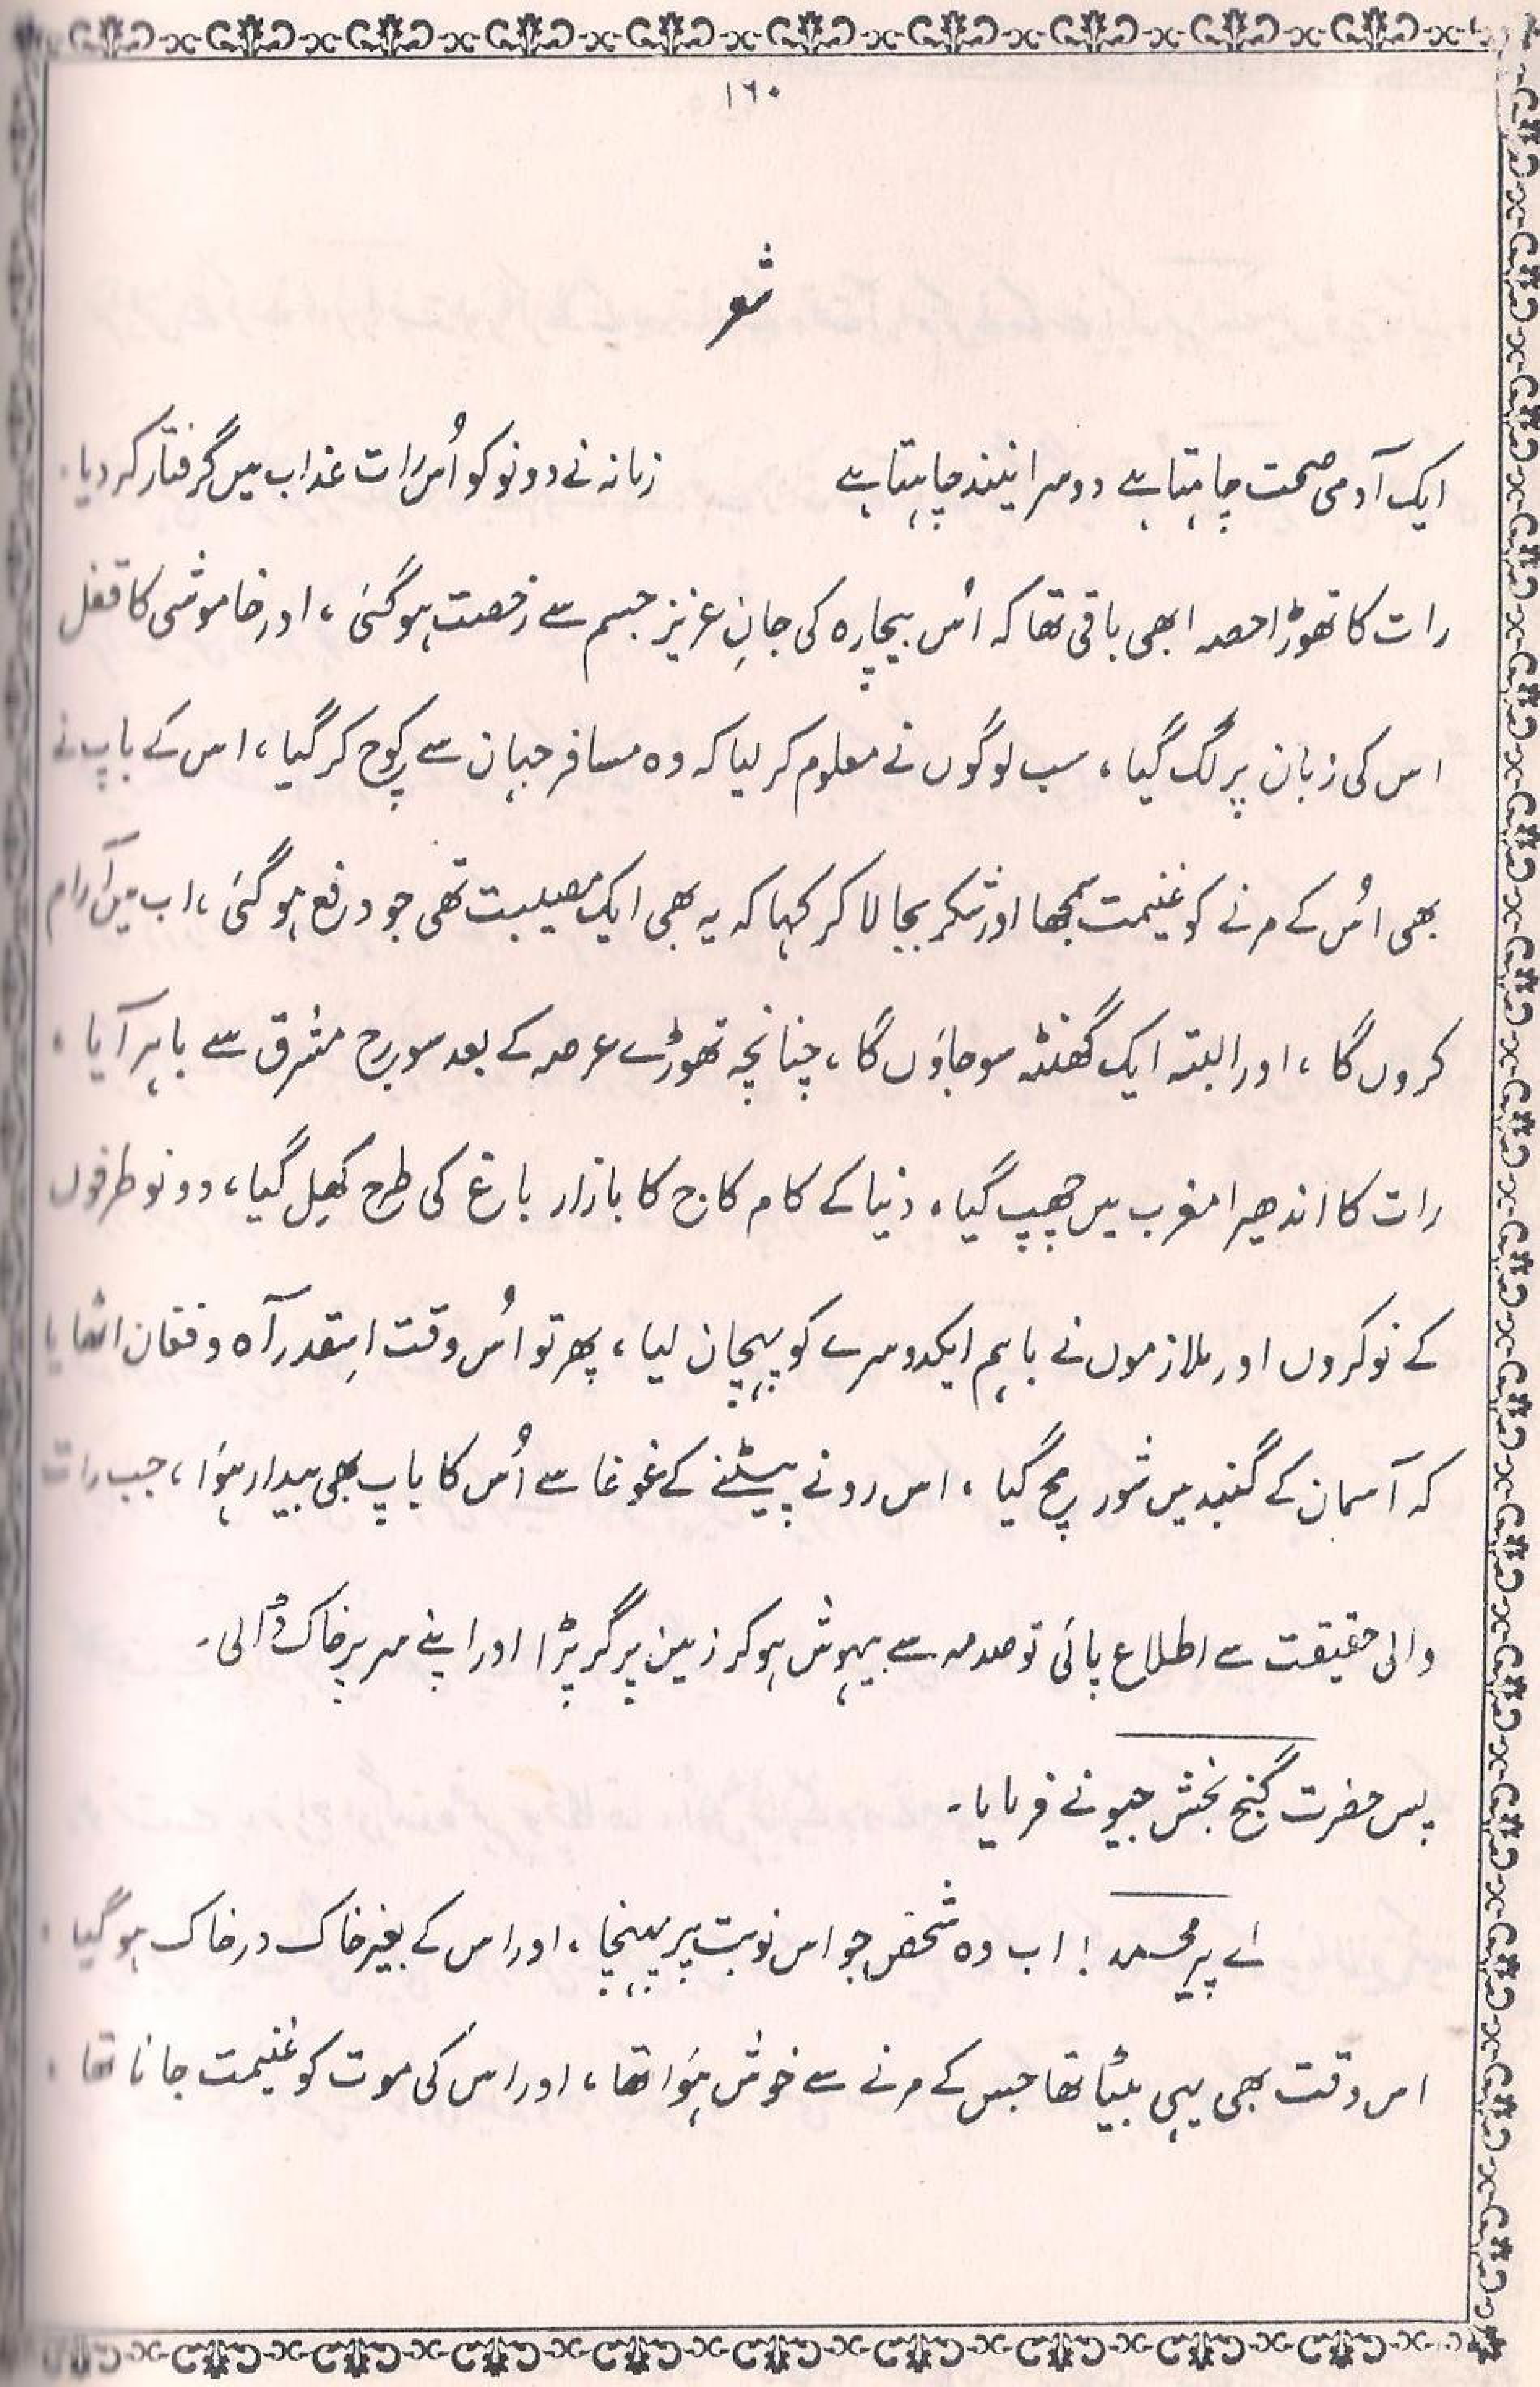 ۱۶۰
شعر
ایک آدمی صحت چاہتا ہے دوسرا نیند چاہتا ہے زمانہ نے دونو کو اُس رات عذاب میں گرفتار کر دیا۔
رات کا تھوڑا حصہ ابھی باقی تھا کہ اُس بیچارہ کی جانِ عزیز جسم سے رخصت ہو گئی، اور خاموشی کا قفل
اس کی زبان پر لگ گیا، سب لوگوں نے معلوم کر لیا کہ وہ مسافر جہان سے کوچ کر گیا، اس کے باپ نے
بھی اُس کے مرنے کو غنیمت سمجھا اور شکر بجا لا کر کہا کہ یہ بھی ایک مصیبت تھی جو دفع ہو گئی، اب میں آرام
کروں گا، اور البتہ ایک گھنٹہ سو جاؤں گا، چنانچہ تھوڑے عرصہ کے بعد سورج مشرق سے باہر آیا،
رات کا اندھیرا مغرب میں چھپ گیا، دنیا کے کام کاج کا بازار باغ کی طرح کھِل گیا، دونو طرفوں
کے نوکروں اور ملازموں نے باہم ایکدوسرے کو پہچان لیا، پھر تو اُس وقت اِسقدر آہ و فغان اٹھایا
کہ آسمان کے گنبد میں شور مچ گیا، اس رونے پیٹنے کے غوغا سے اُس کا باپ بھی بیدار ہؤا، جب رات
والی حقیقت سے اطلاع پائی تو صدمہ سے بیہوش ہو کر زمین پر گر پڑا اور اپنے سر پر خاک ڈالی۔
پس حضرت گنج بخش جیو نے فرمایا۔
اے پیر محمد! اب وہ شخص جو اس نوبت پر پہنچا، اور اس کے بغیر خاک در خاک ہو گیا،
اس وقت بھی یہی بیٹا تھا جس کے مرنے سے خوش ہؤا تھا، اور اس کی موت کو غنیمت جانا تھا،